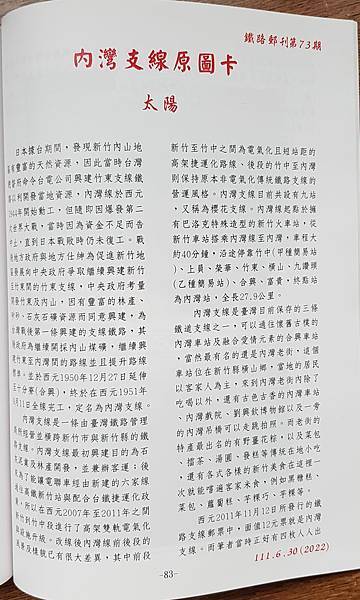 鐵路郵刊第73期
內灣支線原圖卡
太陽
日本據台期間，發現新竹內山地
有豐富的天然資源，因此當時台灣
府命令台電公司興建竹東支線鐵
以利開發當地資源，內灣線於西元
1944年開始動工，但隨即因爆發第二
世界大戰，當時因為資金不足而告
中止，直到日本戰敗時仍未復工。戰
地方政府與地方仕紳為促進新竹地
發展向中央政府爭取繼續興建新竹
竹東間的竹東支線，中央政府考量
開發竹東及內山，因有豐富的林產、
、石灰石礦資源而同意興建，為
灣戰後第一條興建的支線鐵路，其
政府為繼續開採內山煤礦，繼續興
竹東至內灣間的路線並且提升路線
標準。並於西元1950年12月27日延伸
十分寮(合興)，終於在西元1951年
月11日全線完工，定名為內灣支線。
內灣支線是一條由臺灣鐵路管理
所經營並橫跨新竹市與新竹縣的鐵
路支線。內灣支線最初興建目的為石
灰產業及林產開發，並兼辦客運；後
為了能讓電聯車經由新建的六家線
往高鐵新竹站與配合台鐵捷運化政
，所以在西元2007年至2011年之間
新竹到竹中段進行了高架雙軌電氣化
設施升級。改線後內灣線前後段的
景及樣貌已有很大差異，其中前段
新竹至竹中之間為電氣化且短站距的
高架捷運化路線、後段的竹中至內灣
則保持原本非電氣化傳統鐵路支線的
營運風格。內灣支線目前共設有九站
，又稱為櫻花支線。內灣線起點於擁
有巴洛克特殊造型的新竹火車站，從
新竹車站搭乘內灣線至內灣，車程大
約40分鐘，沿途停靠竹中(甲種簡易站
)、上員、榮華、竹東、橫山、九讚頭
(乙種簡易站)、合興、富貴，終點站
為內灣站，全長27.9公里。
內灣支線是臺灣目前保存的三條
鐵道支線之一，可以通往懷舊古樸的
內灣車站及融合愛情元素的合興車站
，當然最有名的還是內灣老街，這個
車站位在新竹縣橫山鄉，當地的居民
以客家人為主，來到內灣老街內除了
吃喝以外，還有古色古香的內灣車站
、內灣戲院、劉興欽博物館以及一旁
的內灣吊橋可以走跳拍照。而老街的
特產最出名的有野薑花粽，以及菜包
、擂茶、湯圓、發糕等傳統在地小吃
，還有各式各樣的新竹美食在這裡一
次就能嚐遍客家米食，例如黑糖糕、
菜包、蘿蔔糕、芋粿巧、芋粿等。
西元2011年11月12日所發行的鐵
路支線郵票中，面值12元票就是內灣
支線。而筆者當時正好有四枚人人出
111.6.30(2022)
-83-